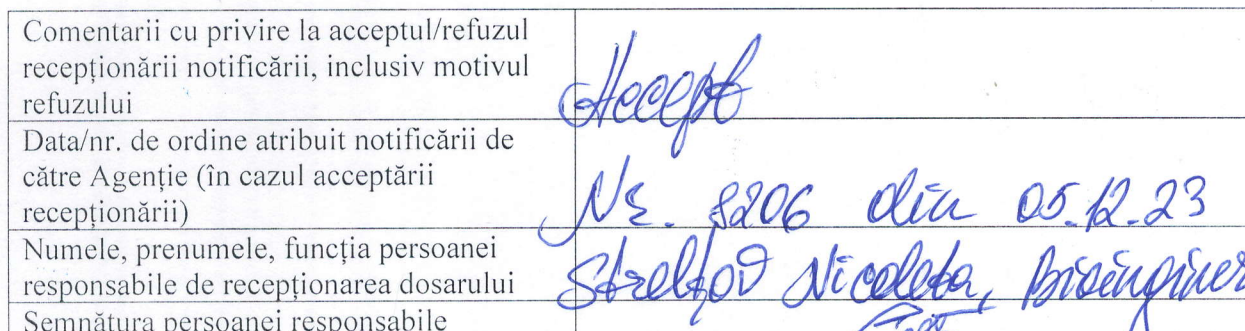 Comentarii cu privire la acceptul/refuzul
recepționării notificării, inclusiv motivul
refuzului
Accept
Data/nr. de ordine atribuit notificării de
către Agenție (în cazul acceptării
recepționării)
Nr. 8206 din 05.12.23
Numele, prenumele, funcția persoanei
responsabile de recepționarea dosarului
Streltov Nicoleta, Bioinginer
Semnătura persoanei responsabile